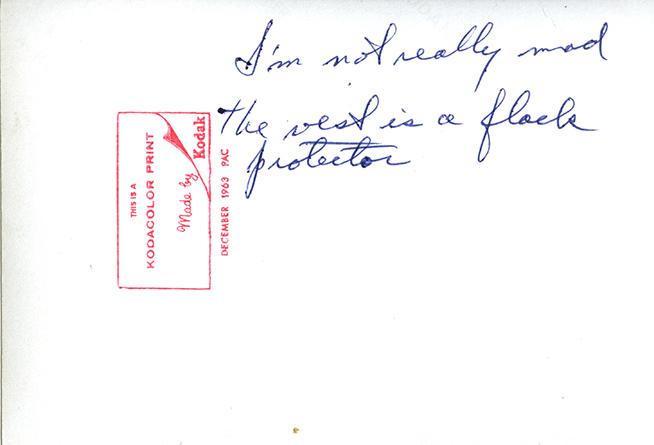 I'm not really mad
the vest is a flack
protector
THIS IS A
KODACOLOR PRINT
Made by
Kodak
DECEMBER 1963 PAC